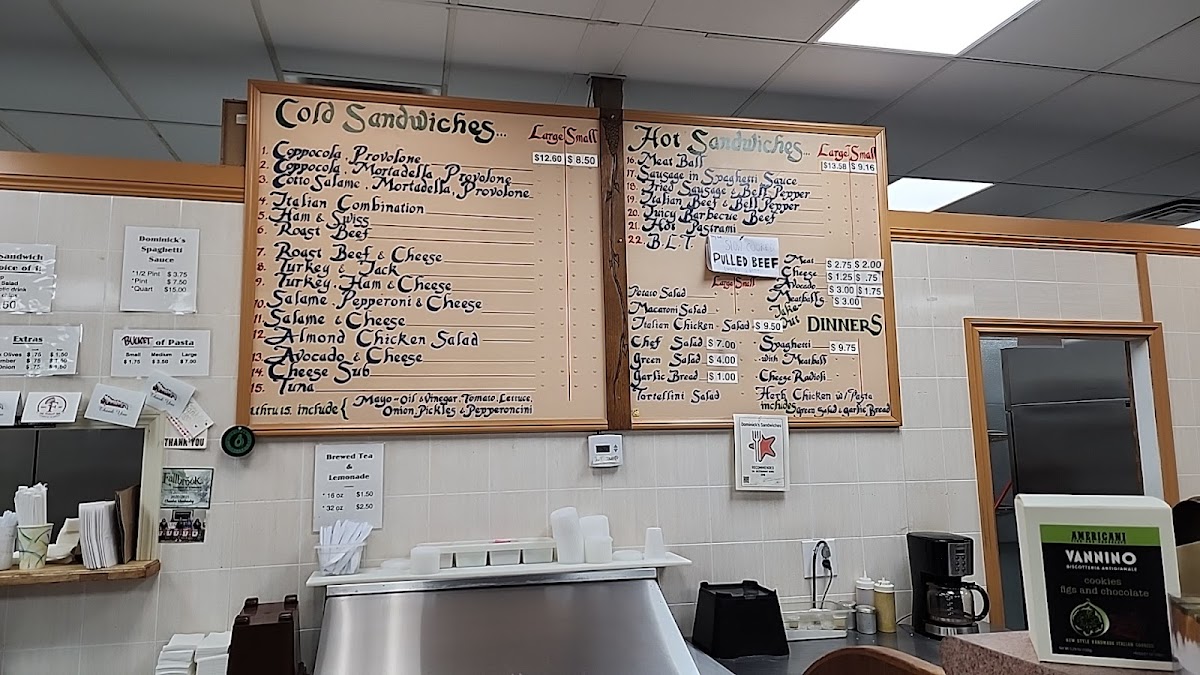 Cold Sandwiches...
Large Small
$12.60 $8.50
1. Coppocola, Provolone
2. Coppocola, Mortadella, Provolone
3. Cotto Salame, Mortadella, Provolone
4. Italian Combination
5. Ham & Swiss
6. Roast Beef
7. Roast Beef & Cheese
8. Turkey & Jack
9. Turkey, Ham & Cheese
10. Salame, Pepperoni & Cheese
11. Salame & Cheese
12. Almond Chicken Salad
13. Avocado & Cheese
14. Cheese Sub
15. Tuna
thru 15. include { Mayo-Oil & Vinegar, Tomato, Lettuce,
Onion, Pickles & Pepperoncini
Hot Sandwiches...
Large Small
$13.58 $9.16
16. Meat Ball
17. Sausage in Spaghetti Sauce
18. Fried Sausage & Bell Pepper
19. Italian Beef & Bell Pepper
20. Juicy Barbecue Beef
21. Hot Pastrami
22. B.L.T.
PULLED BEEF
Large Small
Potato Salad
Macaroni Salad
Italian Chicken Salad $9.50
Chef Salad $7.00
Green Salad $4.00
Garlic Bread $1.00
Tortellini Salad
Meat $2.75 $2.00
Cheese $1.25 $.75
Avocado $3.00 $1.75
Meatballs $3.00
Take
Out DINNERS
Spaghetti $9.75
with Meatball
Cheese Ravioli
Herb Chicken w/Pasta
includes Green Salad & Garlic Bread
Sandwich
Salad
Dominick's
Spaghetti
Sauce
*1/2 Pint $3.75
*Pint $7.50
*Quart $15.00
Extras
Olives $.75 $1.50
BUCKET of Pasta
Small Medium Large
$1.75 $3.50 $7.00
Thank You
THANK YOU
Fallbrook
Brewed Tea
&
Lemonade
* 16 oz $1.50
* 32 oz $2.50
Dominick's Sandwiches
RECOMMENDED
AMERICANI
VANNINO
BISCOTTERIA ARTIGIANALE
cookies
figs and chocolate
NEW STYLE HANDMADE ITALIAN COOKIES